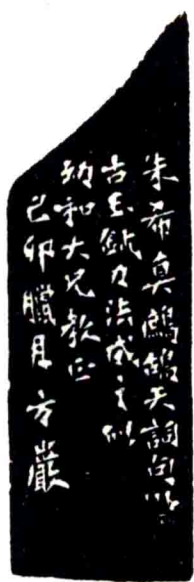 朱希真鷓鴣天詞句以
古玉鉥刀法成之似
纫和大兄教正
己卯臘月方巖